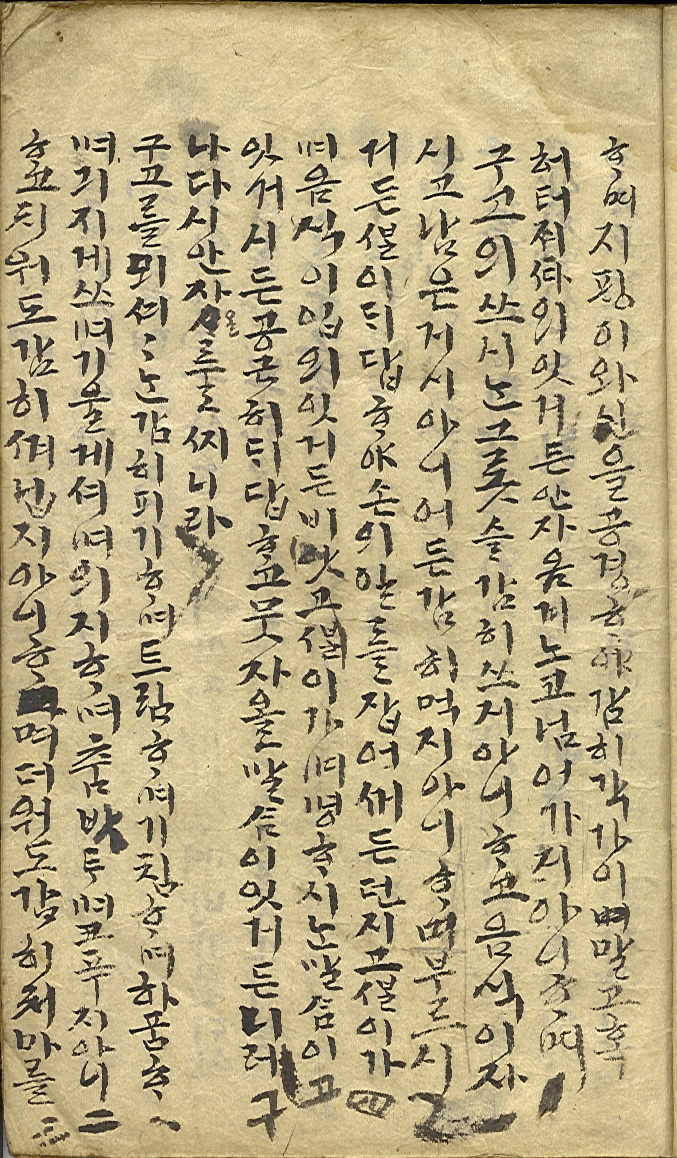 ᄒᆞ며지팡이와신을공경ᄒᆞ야감히각가이며말고혹
허터져ᄯᅡ의잇거든안자옴겨노코넘어가지아니ᄒᆞ며
구고의쓰시ᄂᆞᆫ그릇슬감히쓰지아니ᄒᆞ고음식이자
시고남은거시아니어든감히먹지아니ᄒᆞ며부르시
거든ᄲᆞᆯ이ᄃᆡ답ᄒᆞ야손의안든들잡어ᄯᅥ든던지고ᄲᆞᆯ이가
며음식이입의잇거든비앗고ᄲᆞᆯ이가며명ᄒᆞ시ᄂᆞᆫ말ᄉᆞᆷ이
잇거시든공근히ᄃᆡ답ᄒᆞ고뭇자올말ᄉᆞᆷ이잇거든니러
나다시안자올ᄅᆞᆯ지니라
구고를뫼셔ᄂᆞᆫ감히피기ᄒᆞ며트림ᄒᆞ며기침ᄒᆞ며하품ᄒᆞ
며긔지게쓰며기울게셔며의지ᄒᆞ며춤밧트며코푸지아니
ᄒᆞ고치워도감히ᄭᅧ닙지아니ᄒᆞ며더워도감히처마를